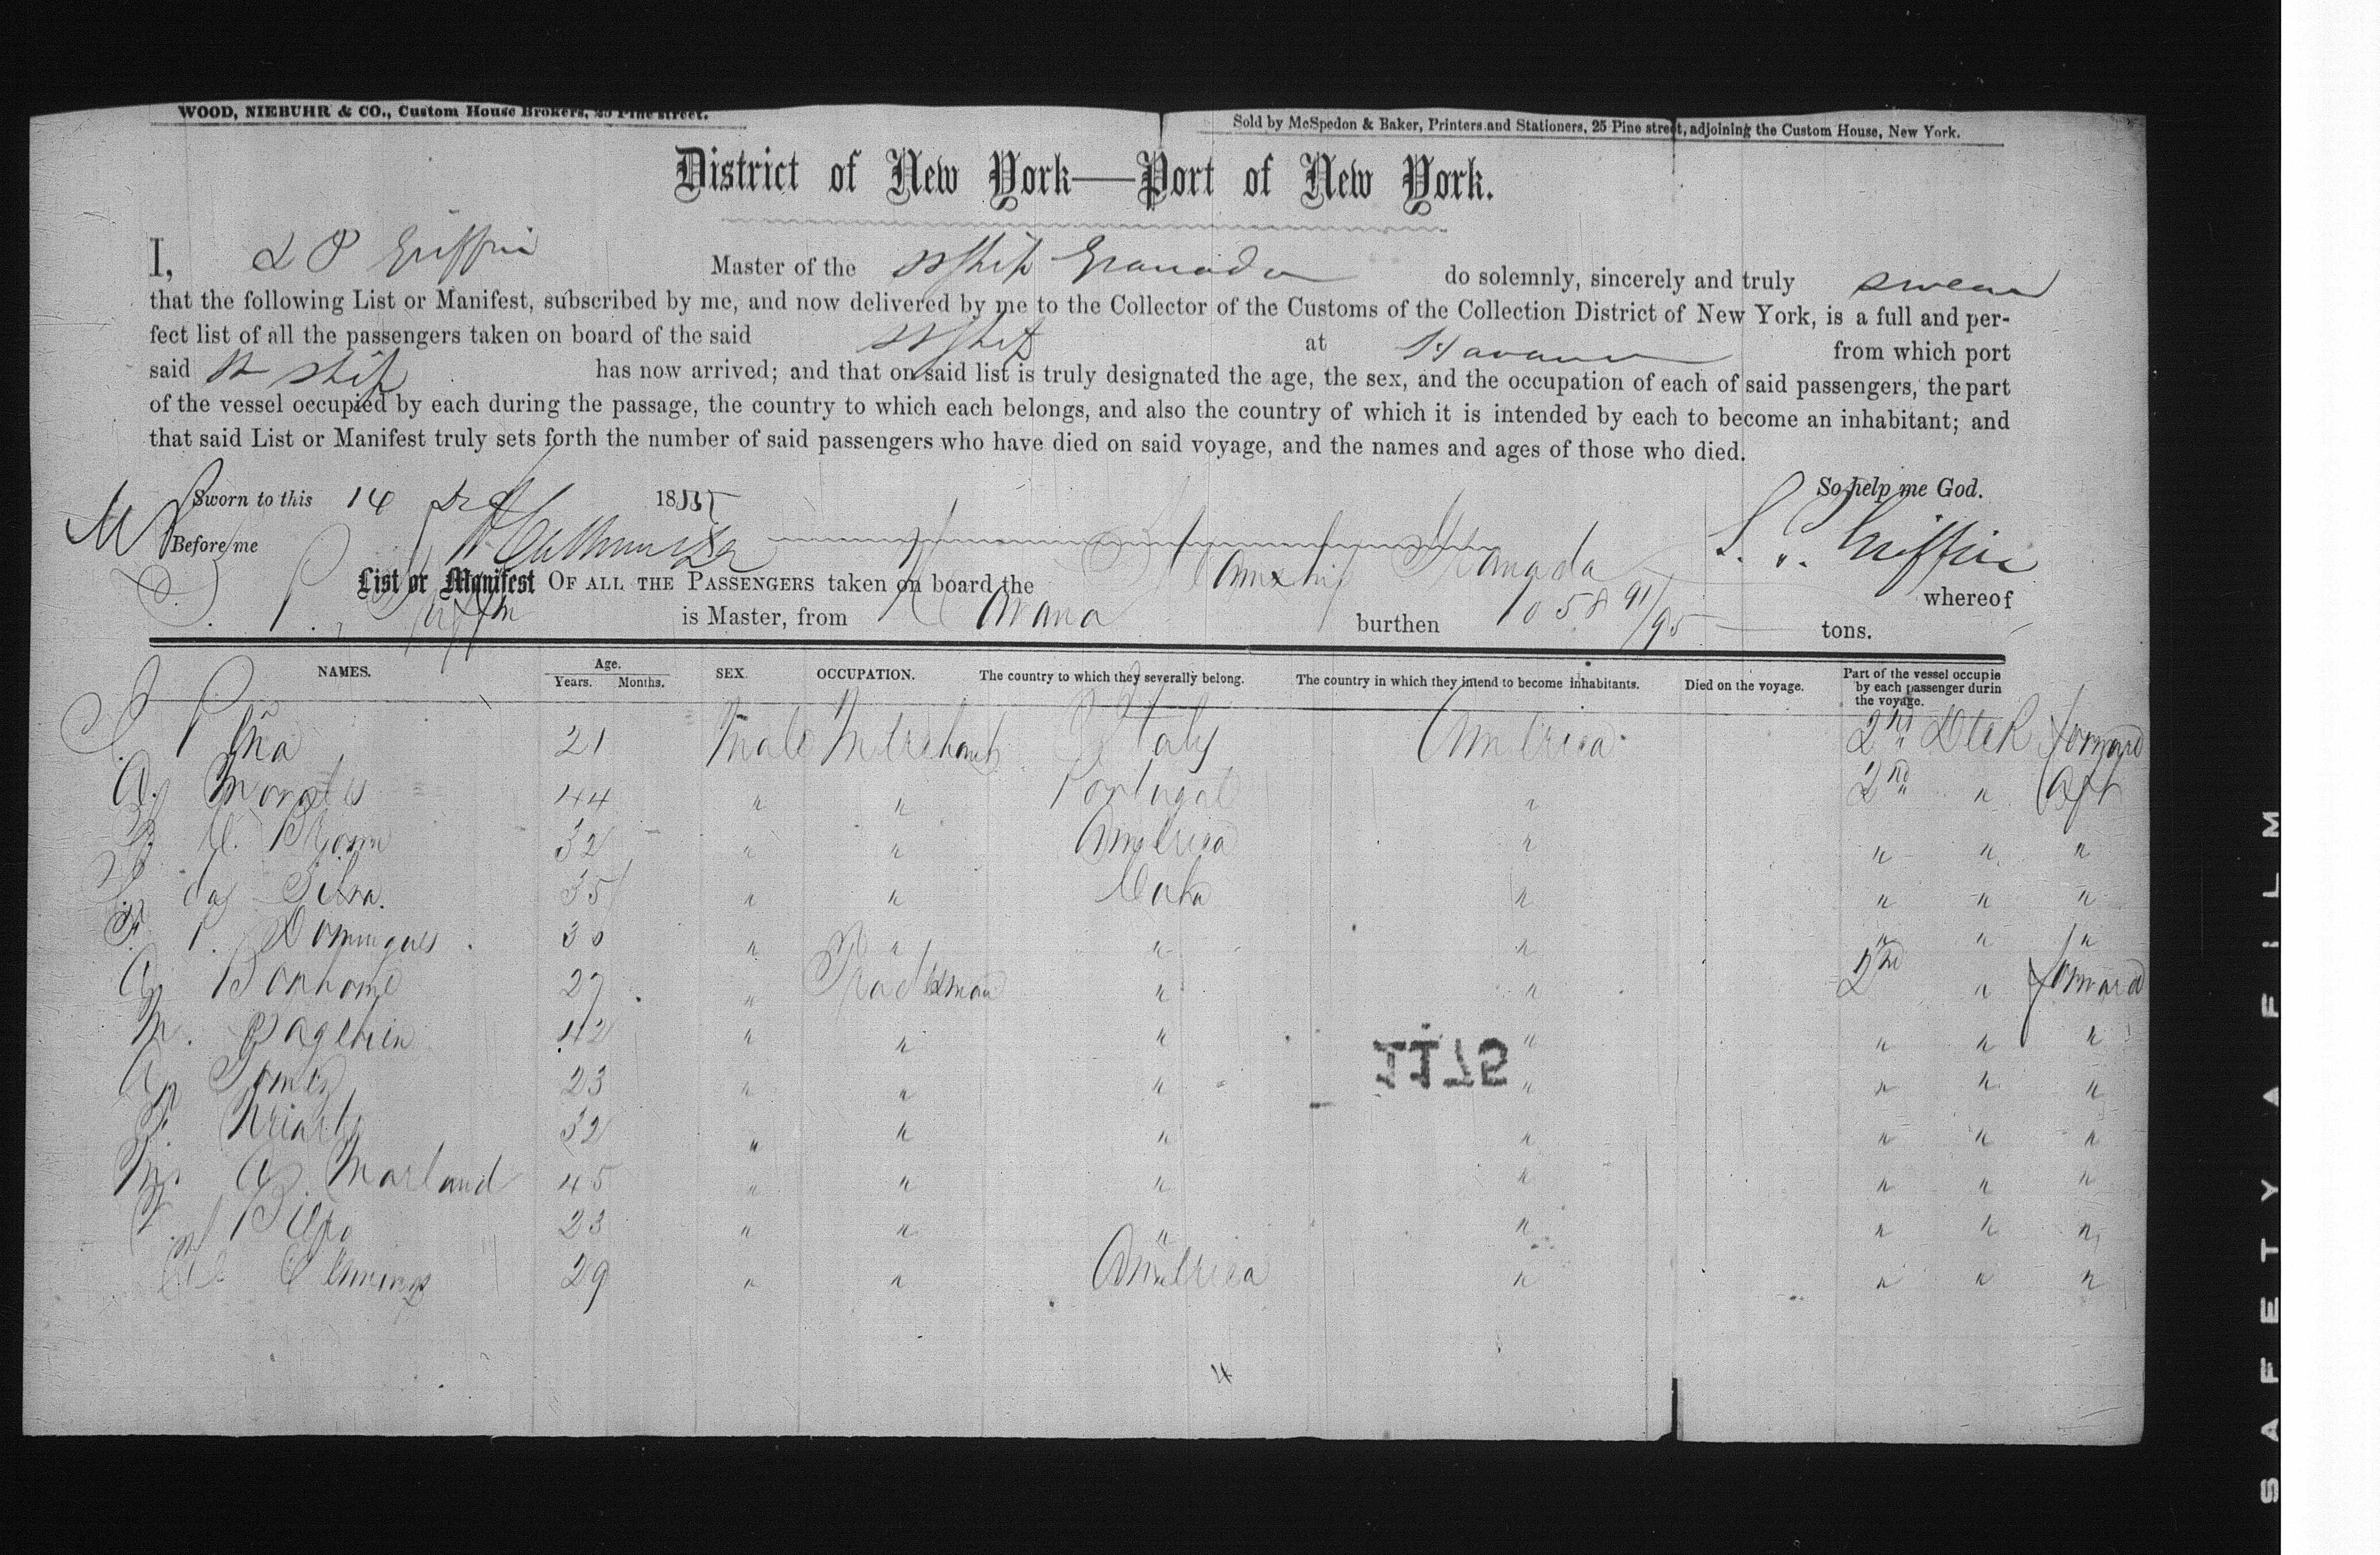 WOOD, NIEBUHR & CO., Custom House Brokers, 25 Pine street.
Sold by McSpedon & Baker, Printers and Stationers, 25 Pine street, adjoining the Custom House, New York.
District of New York—Port of New York.
I, L P Griffin Master of the SShip Granada do solemnly, sincerely and truly swear
that the following List or Manifest, subscribed by me, and now delivered by me to the Collector of the Customs of the Collection District of New York, is a full and per-
fect list of all the passengers taken on board of the said SShip at Havana from which port
said St ship has now arrived; and that on said list is truly designated the age, the sex, and the occupation of each of said passengers, the part
of the vessel occupied by each during the passage, the country to which each belongs, and also the country of which it is intended by each to become an inhabitant; and
that said List or Manifest truly sets forth the number of said passengers who have died on said voyage, and the names and ages of those who died.
So help me God.
Sworn to this 14 1855
Before me
L. P. Griffin
List or Manifest OF ALL THE PASSENGERS taken on board the Steamship Granada whereof
S. P. Griffin is Master, from Havana burthen 1058 91/95 tons.
NAMES. Age. Years. Months. SEX. OCCUPATION. The country to which they severally belong. The country in which they intend to become inhabitants. Died on the voyage. Part of the vessel occupie by each passenger durin the voyage.
Piña 21 Male Merchant Italy America 2nd Deck forward
A. Morales 44 " " Portugal " 2nd " Aft
32 " " America " " " "
da Silva. 35 " " Cuba " " " "
F. P. Domingues 30 " " " " " " "
A. Bonhome 27 " Tradesman " " 2nd " forward
M. 42 " " " " " " "
A. Gomez 23 " " " " " " "
F. Uriarte 32 " " " " " " "
M. A. Marland 45 " " " " " " "
F. 23 " " " " " " "
29 " " America " " " "
4
SAFETY FILM